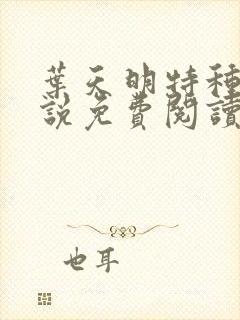 葉天明特種
說免費閱讀
也耳